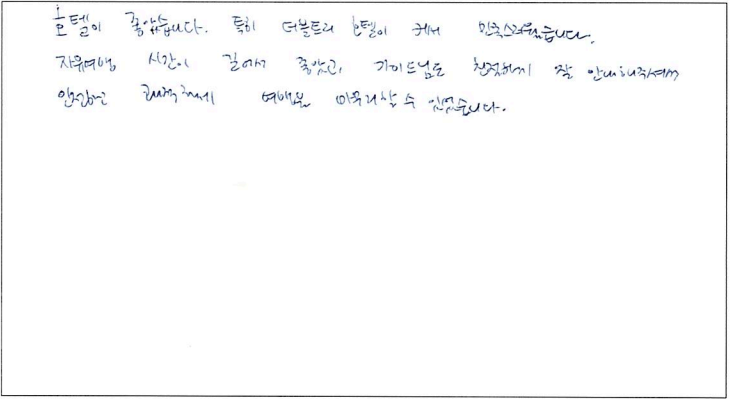 호텔이 좋았습니다. 특히 더블트리 호텔이 커서 만족스러웠습니다.
자유여행 시간이 길어서 좋았고, 가이드님도 친절하게 잘 안내해주셔서
안전하고 쾌적하게 여행을 마무리할 수 있었습니다.